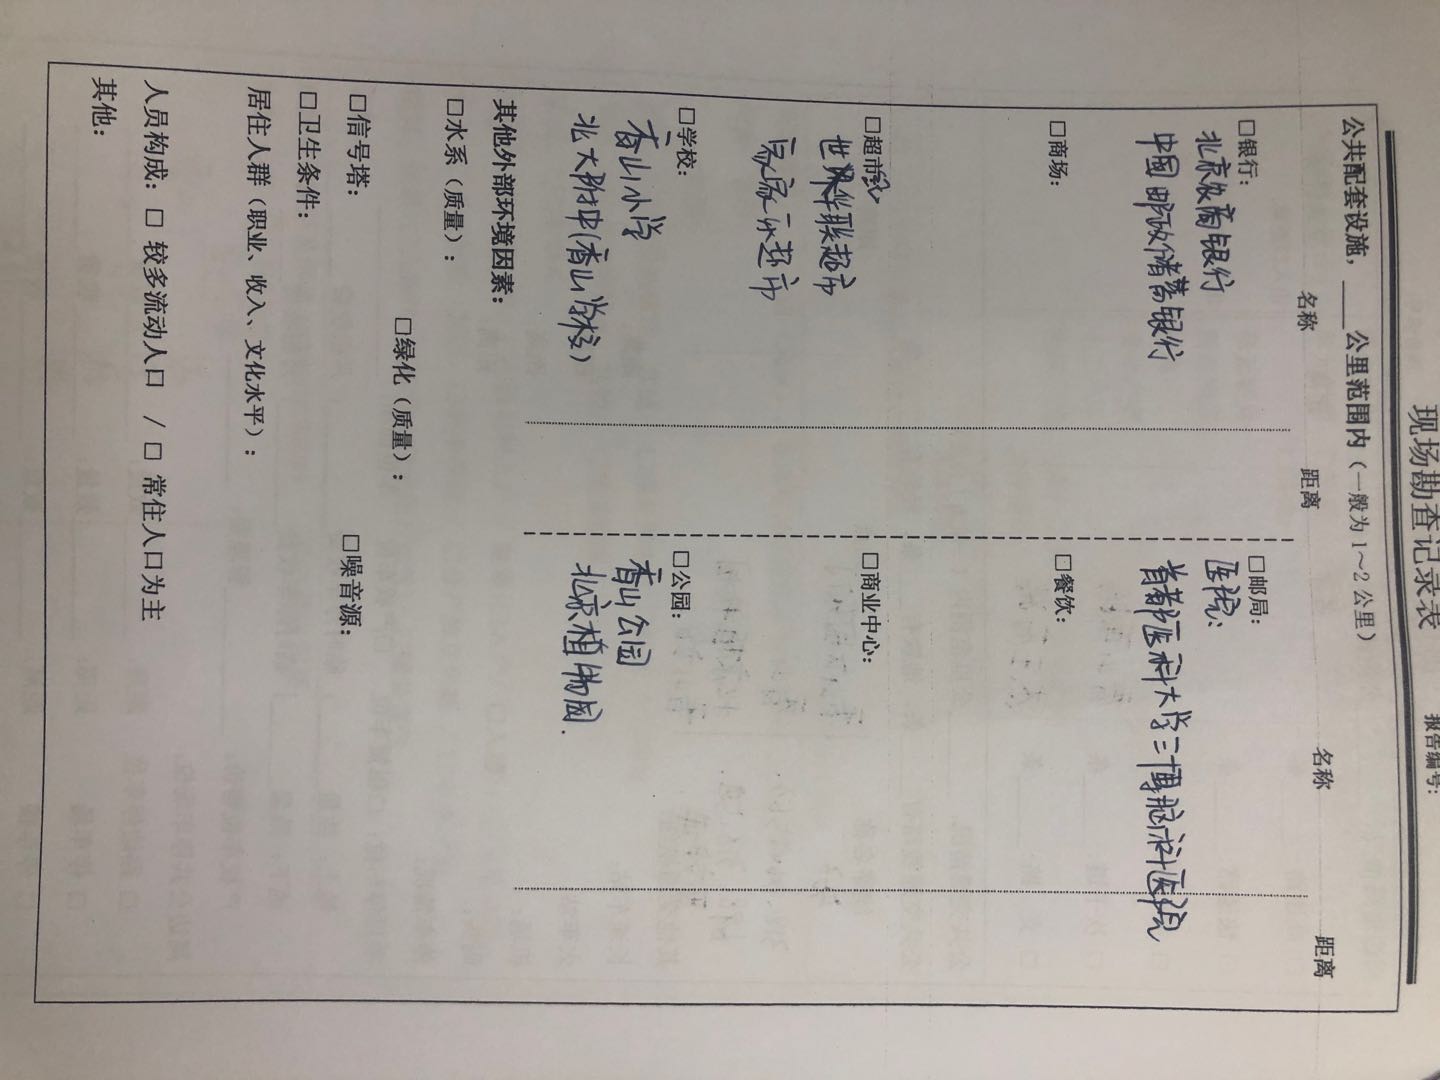 现场勘查记录表
报告编号:
公共配套设施，____公里范围内（一般为1～2公里）
名称 距离 名称 距离
□银行： □邮局：
北京农商银行 医院：
中国邮政储蓄银行 首都医科大学三博脑科医院
□商场： □餐饮：
□超市： □商业中心：
世界华联超市
家家乐超市
□学校： □公园：
香山小学 香山公园
北大附中(香山学校) 北京植物园.
其他外部环境因素：
□水系（质量）：
□绿化（质量）：
□信号塔： □噪音源：
□卫生条件：
居住人群（职业、收入、文化水平）：
人员构成：□ 较多流动人口 / □ 常住人口为主
其他：